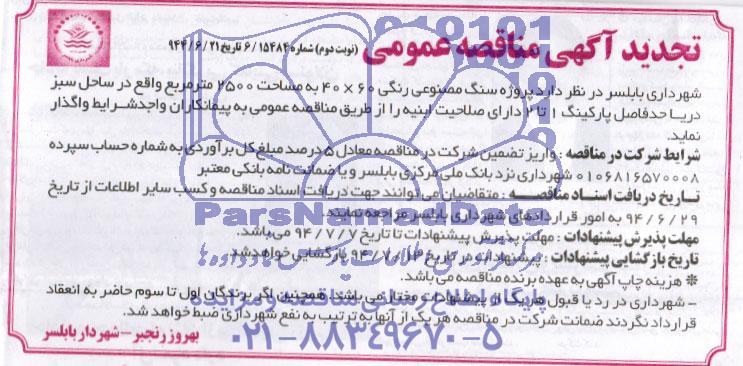 تجدید آگهی مناقصه عمومی (نوبت دوم) شماره ۶/۱۵۴۸۴ تاریخ ۹۴۴/۶/۲۱
شهرداری بابلسر در نظر دارد پروژه سنگ مصنوعی رنگی ۶۰ × ۴۰ به مساحت ۲۵۰۰ مترمربع واقع در ساحل سبز
دریا حدفاصل پارکینگ ۱ تا ۲ دارای صلاحیت ابنیه را از طریق مناقصه عمومی به پیمانکاران واجدشرایط واگذار
نماید.
شرایط شرکت در مناقصه : واریز تضمین شرکت در مناقصه معادل ۵ درصد مبلغ کل برآوردی به شماره حساب سپرده
۰۱۰۶۸۱۶۵۷۰۰۰۸ شهرداری نزد بانک ملی مرکزی بابلسر و یا ضمانت نامه بانکی معتبر
تاریخ دریافت اسناد مناقصه : متقاضیان می توانند جهت دریافت اسناد مناقصه و کسب سایر اطلاعات از تاریخ
۹۴/۶/۲۹ به امور قراردادهای شهرداری بابلسر مراجعه نمایند.
مهلت پذیرش پیشنهادات : مهلت پذیرش پیشنهادات تا تاریخ ۹۴/۷/۷ می باشد.
تاریخ بازگشایی پیشنهادات : پیشنهادات در تاریخ ۹۴/۷/ بازگشایی خواهد شد.
* هزینه چاپ آگهی به عهده برنده مناقصه می باشد.
- شهرداری در رد یا قبول هر یک از پیشنهادات مختار می باشد. همچنین اگر برندگان اول تا سوم حاضر به انعقاد
قرارداد نگردند ضمانت شرکت در مناقصه هر یک از آنها به ترتیب به نفع شهرداری ضبط خواهد شد.
بهروز رنجبر - شهردار بابلسر
ParsNamadData
۰۲۱-۸۸۳۴۹۶۷۰-۵